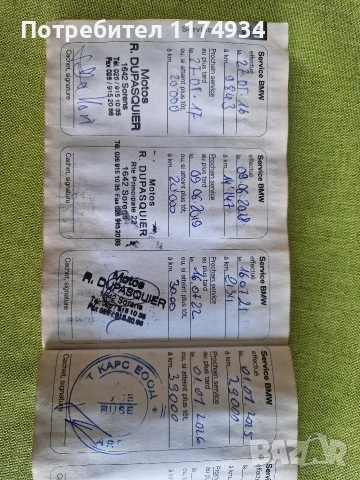 Потребител 1174934
Service
Service BMW
effectué
le 27.05.16
à km 9843
Prochain service
au plus tard
ou, si atteint plus tôt,
à km 20'000
Motos
R. DUPASQUIER
1642 Sorens
Tél. 026 / 915 10 35
Fax 026 / 915 20 86
Cachet, signature
Service BMW
effectué
le 09.06.2018
Prochain service
au plus tard
le 09.06.2019
ou, si atteint plus tôt,
à km
Motos
R. DUPASQUIER
Rte Principale 22
1642 Sorens
Cachet, signature
Service BMW
effectué
le 16.07.21
à km
Prochain service
au plus tard
le 16.07.22
ou, si atteint plus tôt,
à km
Motos
R. DUPASQUIER
1642 Sorens
Cachet, signature
Service BMW
effectué
le 01.07.2025
à km 29000
Prochain service
au plus tard
le 01.07.2026
ou, si atteint plus tôt,
à km 39000
КАРС ЕООД
RUSE
Cachet, signature
BAZAR